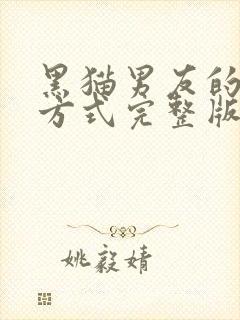 黑猫男友的
方式完整版
姚毅婧